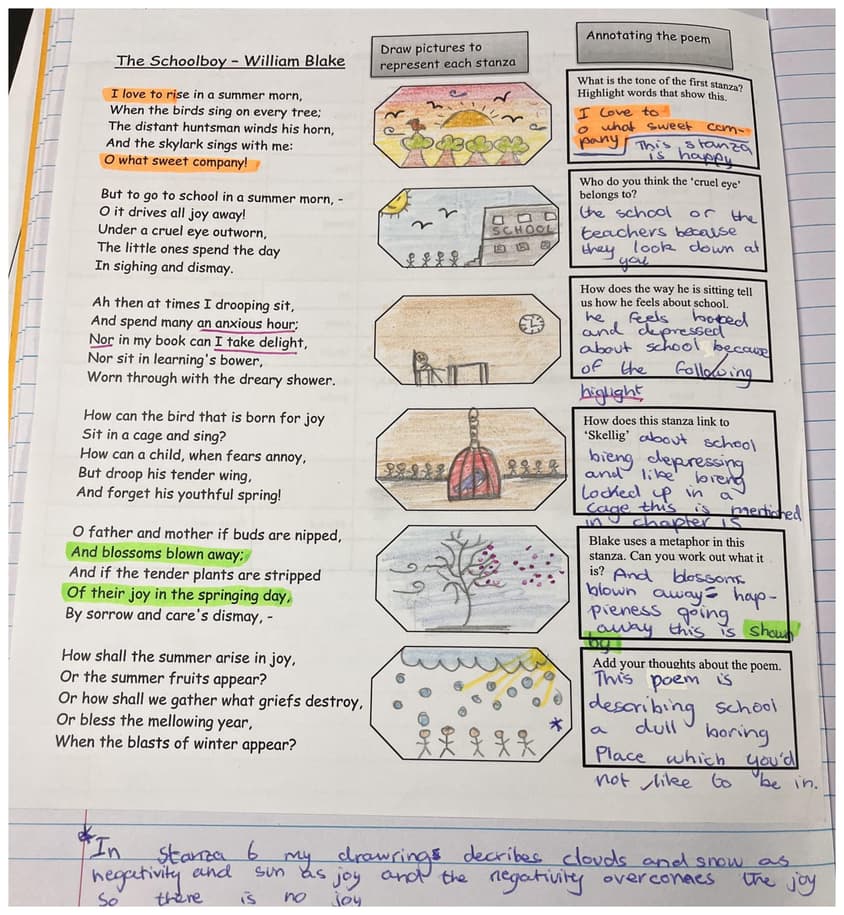 The Schoolboy – William Blake
I love to rise in a summer morn,
When the birds sing on every tree;
The distant huntsman winds his horn,
And the skylark sings with me:
O what sweet company!
But to go to school in a summer morn, -
O it drives all joy away!
Under a cruel eye outworn,
The little ones spend the day
In sighing and dismay.
Ah then at times I drooping sit,
And spend many an anxious hour;
Nor in my book can I take delight,
Nor sit in learning's bower,
Worn through with the dreary shower.
How can the bird that is born for joy
Sit in a cage and sing?
How can a child, when fears annoy,
But droop his tender wing,
And forget his youthful spring!
O father and mother if buds are nipped,
And blossoms blown away;
And if the tender plants are stripped
Of their joy in the springing day,
By sorrow and care's dismay, -
How shall the summer arise in joy,
Or the summer fruits appear?
Or how shall we gather what griefs destroy,
Or bless the mellowing year,
When the blasts of winter appear?
Draw pictures to
represent each stanza
SCHOOL
*
Annotating the poem
What is the tone of the first stanza?
Highlight words that show this.
I love to
o what sweet com-
pany This stanza
is happy
Who do you think the 'cruel eye'
belongs to?
the school or the
teachers because
they look down at
you
How does the way he is sitting tell
us how he feels about school.
he feels bored
and depressed
about school because
of the following
higlight
How does this stanza link to
'Skellig' about school
bieng depressing
and like bieng
locked up in a
cage this is mentioned
in chapter 15
Blake uses a metaphor in this
stanza. Can you work out what it
is? And blossoms
blown away = hap-
pieness going
away this is shown
by
Add your thoughts about the poem.
This poem is
describing school
a dull boring
Place which you'd
not like to be in.
* In stanza 6 my drawrings decribes clouds and snow as
negativity and sun as joy and the negativity overcomes the joy
so there is no joy